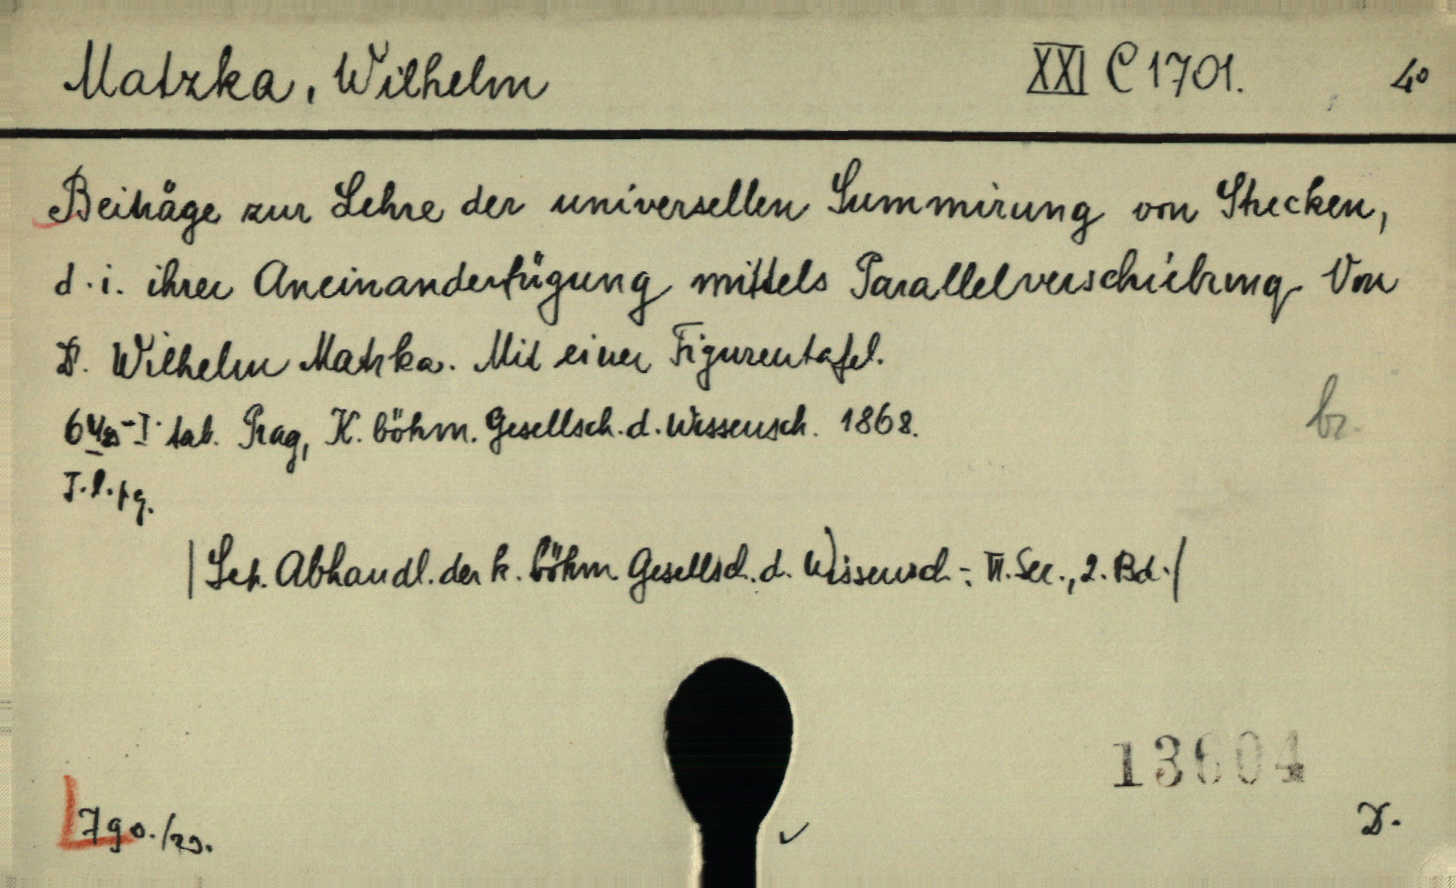 Matzka, Wilhelm XXI C 1701. 4°
Beiträge zur Lehre der universellen Summirung von Strecken,
d. i. ihrer Aneinanderfügung mittels Parallelverschiebung. Von
D. Wilhelm Matzka. Mit einer Figurentafel.
I. tab. Prag, K. böhm. Gesellsch. d. Wissensch. 1868.
br.
I. l. pg.
/Sep. Abhandl. der k. böhm. Gesellsch. d. Wissensch. Bd./
13604
790./29.
D.